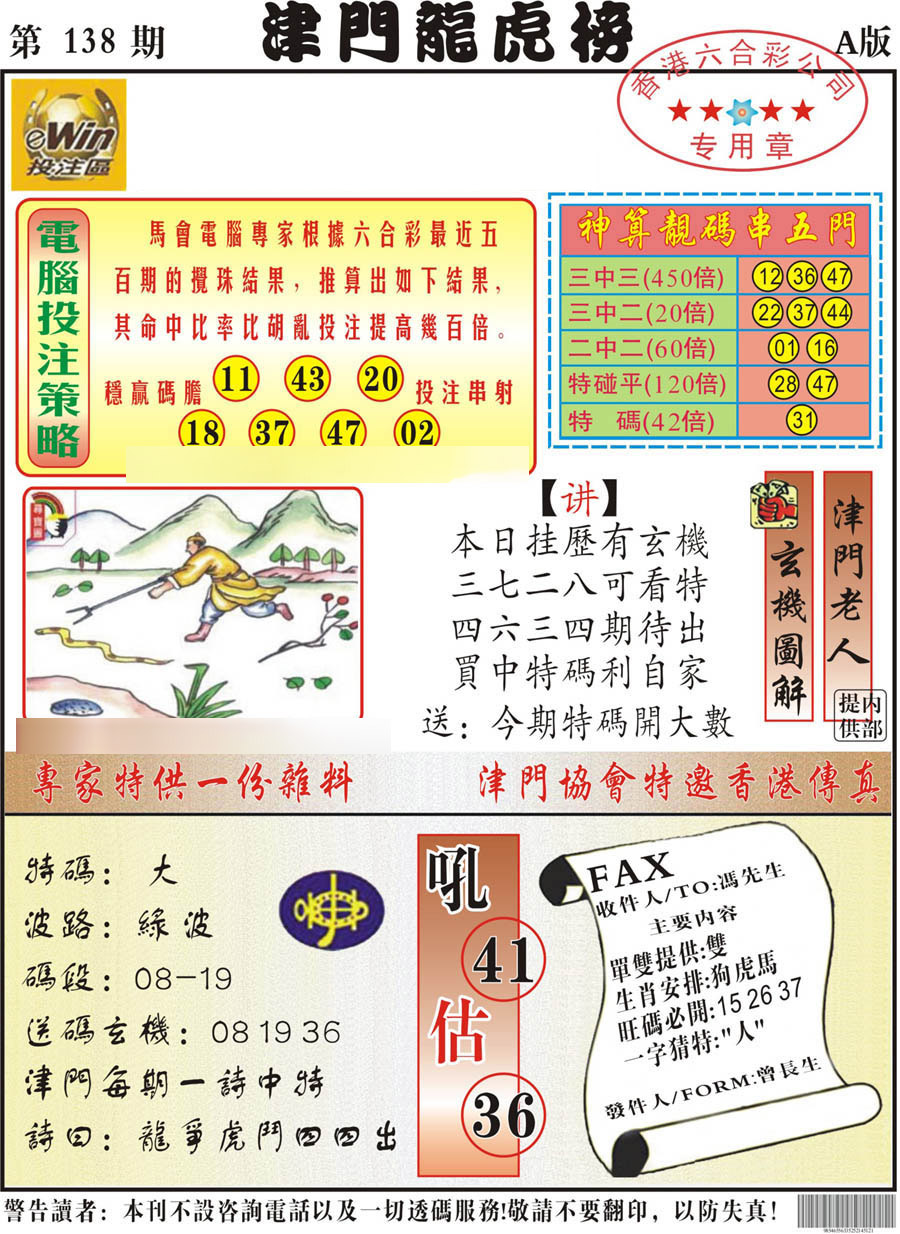 第 138 期
津門龍虎榜
A版
香港六合彩公司
专用章
eWin
投注區
電腦投注策略
馬會電腦專家根據六合彩最近五
百期的攪珠結果，推算出如下結果，
其命中比率比胡亂投注提高幾百倍。
穩贏碼膽 11 43 20 投注串射
18 37 47 02
神算靚碼串五門
三中三(450倍) 12 36 47
三中二(20倍) 22 37 44
二中二(60倍) 01 16
特碰平(120倍) 28 47
特 碼(42倍) 31
尋寶圖
【讲】
本日挂歷有玄機
三七二八可看特
四六三四期待出
買中特碼利自家
送：今期特碼開大數
玄機圖解
津門老人
內部提供
專家特供一份雜料
津門協會特邀香港傳真
特碼：大
波路：綠波
碼段：08-19
送碼玄機：08 19 36
津門每期一詩中特
詩曰：龍爭虎鬥四四出
吼
41
估
36
FAX
收件人/TO:馮先生
主要内容
單雙提供:雙
生肖安排:狗虎馬
旺碼必開:15 26 37
一字猜特:"人"
發件人/FORM:曾長生
警告讀者：本刊不設咨詢電話以及一切透碼服務!敬請不要翻印，以防失真！